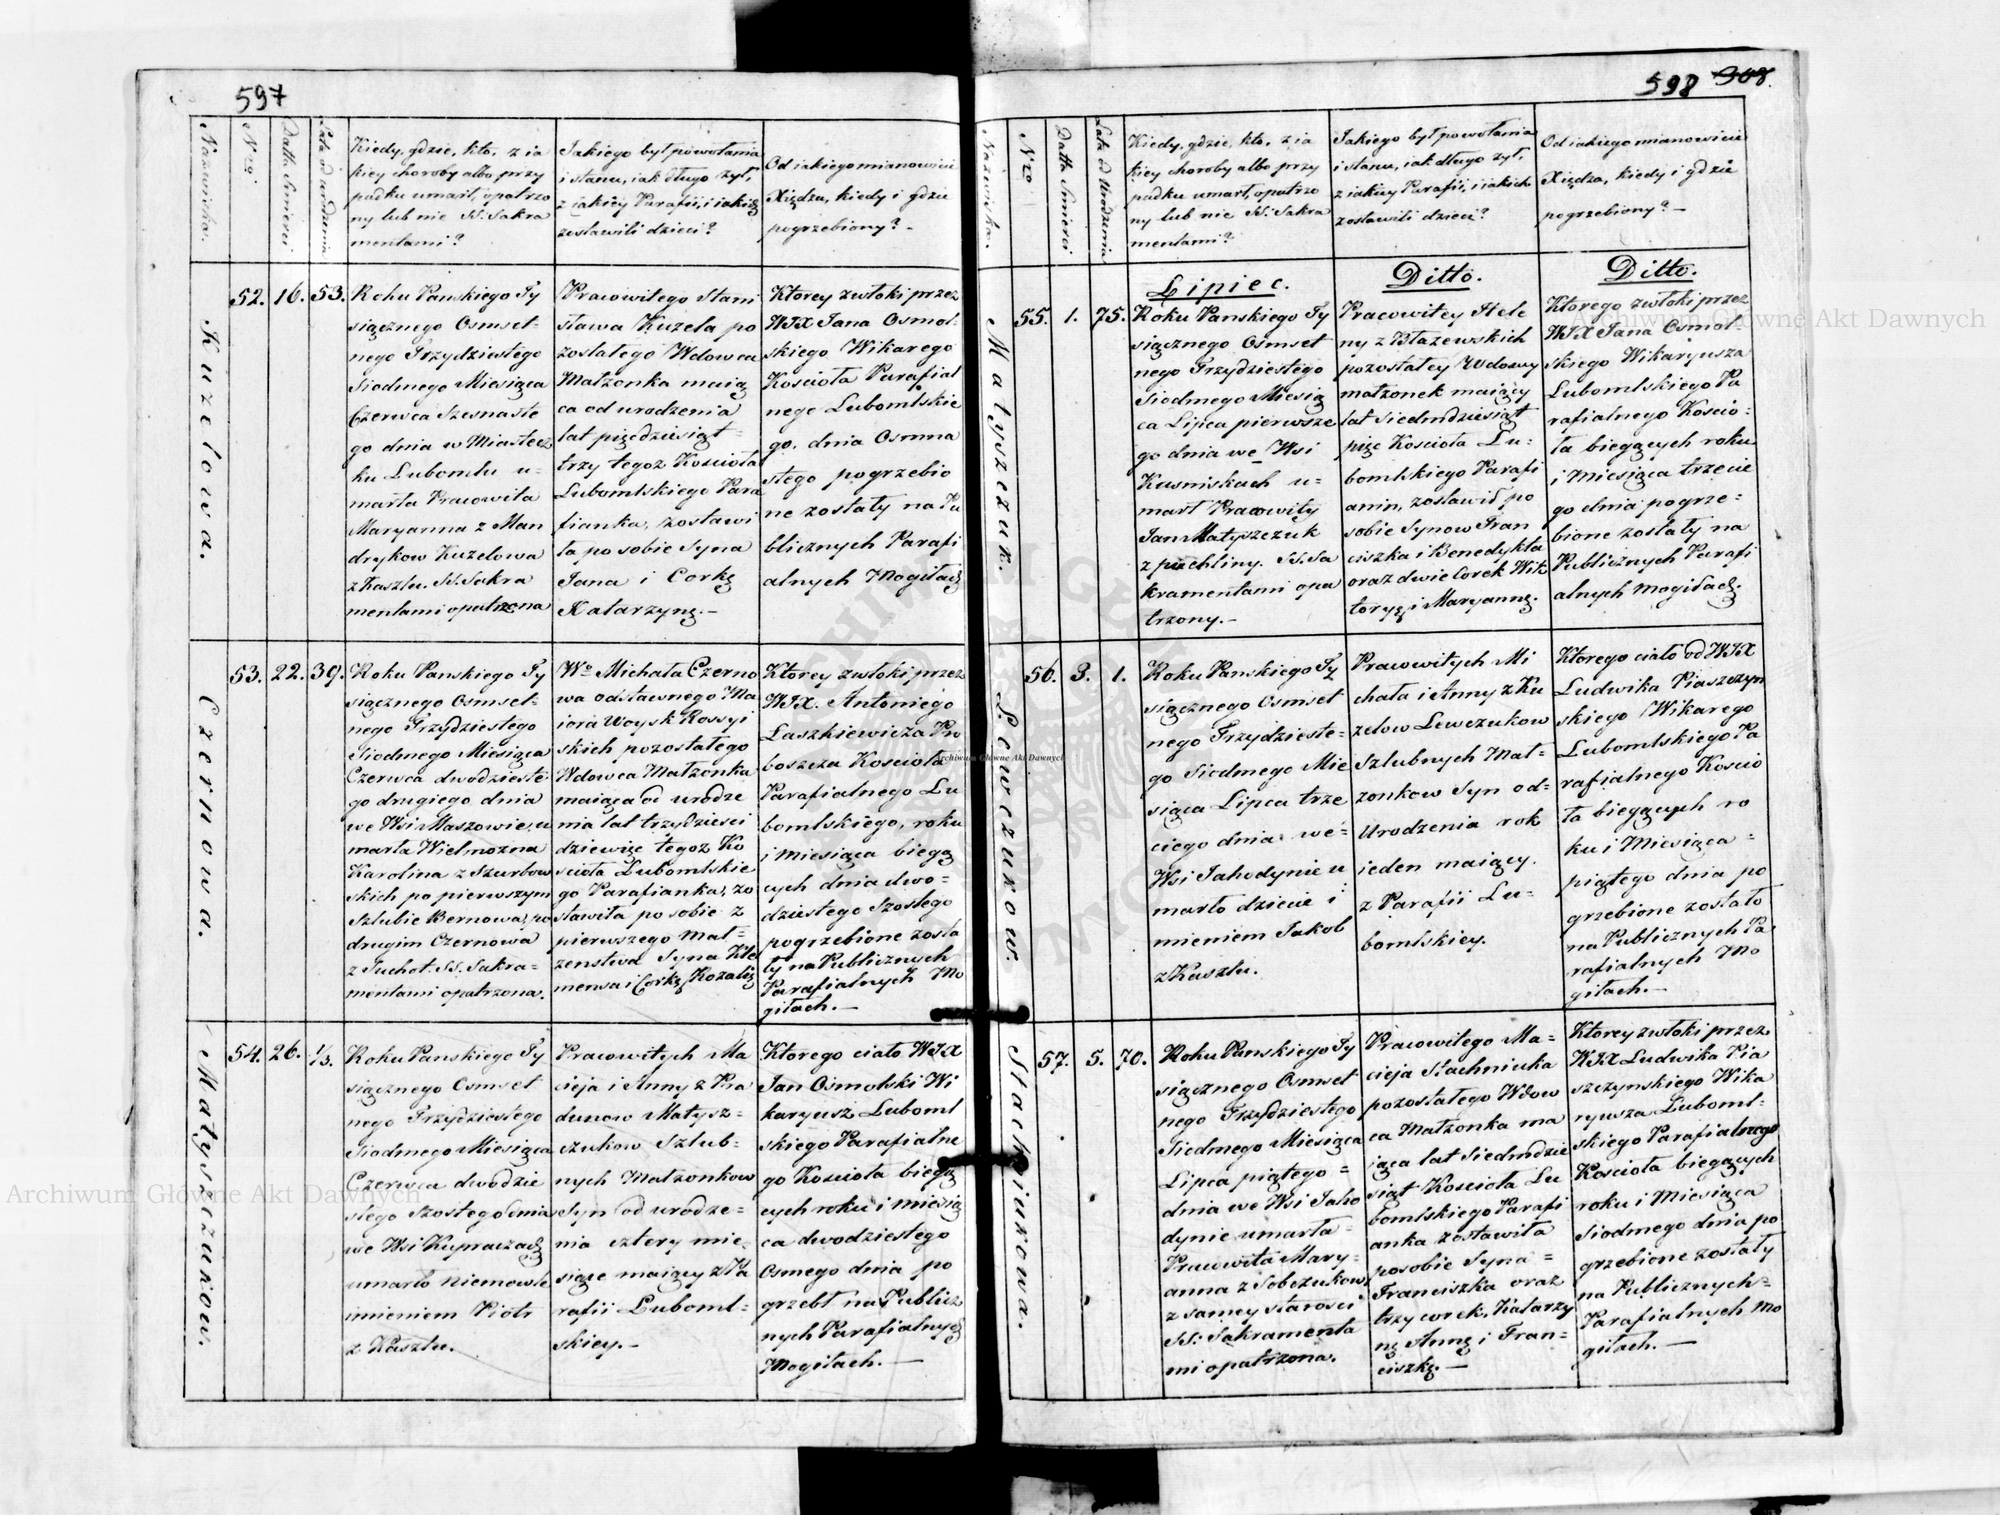 597
Nazwiska.
Nro.
Datta Smierci
Lata od urodzenia
Kiedy, gdzie, kto, z ia
kiey choroby albo przy
padku umarł, opatrzo
ny lub nie SS. Sakra
mentami?
Jakiego był powołania
i stanu, iak długo żył,
z iakiey Parafii, i iakich
zostawili dzieci?
Od iakiego mianowicie
Xiędza, kiedy i gdzie
pogrzebiony? -
Kuzelowa.
52.
16.
53.
Roku Panskiego Ty
siącznego Osmset-
nego Trzydziestego
Siodmego Miesiąca
Czerwca Szesnaste
go dnia w Miastecz
ku Lubomlu u-
marła Pracowita
Maryanna z Man
drykow Kuzelowa
z Kaszlu. SS. Sakra
mentami opatrzona
Pracowitego Stani
sława Kuzela po
zostałego Wdowca
Małzonka maią
ca od urodzenia
lat pięcdziesiąt-
trzy tegoż Kościoła
Lubomlskiego Para
fianka, zostawi
ła po sobie Syna
Jana i Corkę
Katarzynę. -
Ktorey zwłoki przez
WJX Jana Osmol-
skiego Wikarego
Kościoła Parafial
nego Lubomlskie
go, dnia Osmna
stego pogrzebio
ne zostały na Pu
blicznych Parafi
alnych Mogiłach
Czernowa.
53.
22.
39.
Roku Panskiego Ty
siącznego Osmset-
nego Trzydziestego
Siodmego Miesiąca
Czerwca dwudzieste
go drugiego dnia
we Wsi Maszowie, u
marła Wielmozna
Karolina z Szurbow
skich po pierwszym
Szlubie Bernowa, po
drugim Czernowa
z Suchot. SS. Sakra-
mentami opatrzona.
Wo Michała Czerno
wa odstawnego Ma
iora Woysk Rossyi
skich pozostałego
Wdowca Małzonka
maiąca od urodze
nia lat trzydziesci
dziewięc tegoz Ko
scioła Lubomlskie
go Parafianka, zo
stawiła po sobie z
pierwszego Mał-
zenstwa Syna Kle
mensa i Corkę Rozalię
Ktorey zwłoki przez
WJX. Antoniego
Laszkiewicza Pro
boszcza Kościoła
Parafialnego Lu
bomlskiego, roku
i Miesiąca bieżą
cych dnia dwo-
dziestego Szostego
pogrzebione zosta
ły na Publicznych
Parafialnych Mo
giłach. -
Matyszczukow.
54.
26.
1/3.
Roku Panskiego Ty
siącznego Osmset
nego Trzydziestego
Siodmego Miesiąca
Czerwca dwodzie
stego Szostego dnia
we Wsi Kupraczach
umarło niemowle
imieniem Piotr
z Kaszlu.
Pracowitych Ma
cieja i Anny z Pra
dunow Matysz-
czukow Szlub-
nych Małzonkow
Syn od urodze-
nia cztery mie,
siące maiący z Pa
rafii Luboml-
skiey. -
Ktorego ciało WJX
Jan Osmolski Wi
karyusz Luboml
skiego Parafialne
go Kościoła bieżą
cych roku i miesią
ca dwodziestego
Osmego dnia po
grzebł na Publicz
nych Parafialnych
Mogiłach. -
598 308.
Nazwiska.
Nro
Datta Smierci
Lata od Urodzenia
Kiedy, gdzie, kto, z ia
kiey choroby albo przy
padku umarł, opatrzo
ny lub nie SS. Sakra
mentami?
Jakiego był powołania
i stanu, iak długo żył,
z iakiey Parafii, i iakich
zostawili dzieci?
Od iakiego mianowicie
Xiędza, kiedy i gdzie
pogrzebiony? -
Lipiec.
Ditto.
Ditto.
Matyszczuk.
55.
1.
75.
Roku Panskiego Ty
siącznego Osmset
nego Trzydziestego
Siodmego Miesią
ca Lipca pierwsze
go dnia we Wsi
Kusniskach u-
marł Pracowity
Jan Matyszczuk
z puchliny. SS. Sa
kramentami opa
trzony. -
Pracowitey Hele
ny z Błazewskich
pozostałey Wdowy
małzonek maiący
lat Siedmdziesiąt
pięc Kościoła Lu-
bomlskiego Parafi
anin, zostawił po
sobie Synow Fran
ciszka i Benedykta
oraz dwie Corek Wik
toryę i Maryannę.
Ktorego zwłoki przez
WJX Jana Osmol-
skiego Wikaryusza
Lubomlskiego Pa
rafialnego Koscio-
ła bieżących roku
i Miesiąca trzecie
go dnia pogrze-
bione zostały na
Publicznych Parafi
alnych Mogiłach.
Lewczukow.
56.
3.
1.
Roku Panskiego Ty
siącznego Osmset
nego Trzydzieste-
go Siodmego Mie
siąca Lipca trze
ciego dnia we-
Wsi Jahodynie u
marło dziecie i
mieniem Jakob
z Kaszlu.
Pracowitych Mi
chała i Anny z Ku
zelow Lewczukow
Szlubnych Mał-
zonkow Syn od-
Urodzenia rok
ieden maiący.
z Parafii Lu-
bomlskiey.
Ktorego ciało od WJX
Ludwika Piaszczyn
skiego Wikarego
Lubomlskiego Pa
rafialnego Koscio
ła bieżących ro
ku i Miesiąca -
piątego dnia po
grzebione zostało
na Publicznych Pa
rafialnych Mo
giłach. -
Stachniukowa.
57.
5.
70.
Roku Panskiego Ty
siącznego Osmset
nego Trzydziestego
Siedmego Miesiąca
Lipca piątego =
dnia we Wsi Jaho
dynie umarła -
Pracowita Mary-
anna z Sobczukow
z samey starosci
SS: Sakramenta
mi opatrzona.
Pracowitego Ma-
cieja Stachniuka
pozostałego Wdow
ca Małzonka ma
iąca lat Siedmdzie
siąt Kościoła Lu
bomlskiego Parafi
anka zostawiła
po sobie Syna =
Franciszka oraz
trzy corek, Katarzy
nę Annę i Fran-
ciszkę. -
Ktorey zwłoki przez
WJX Ludwika Pia
szczynskiego Wika
ryusza Luboml-
skiego Parafialnego
Kościoła bieżących
roku i Miesiąca
Siodmego dnia po
grzebione zostały
na Publicznych=
Parafialnych Mo
giłach. -
Archiwum Główne Akt Dawnych
Archiwum Główne Akt Dawnych
Archiwum Główne Akt Dawnych